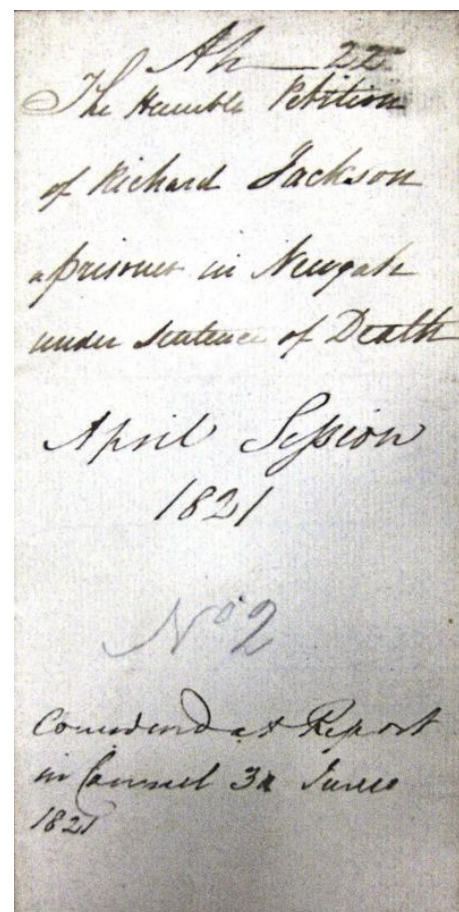 Ah 22
The Humble Petition
of Richard Jackson
a prisoner in Newgate
under Sentence of Death
April Session
1821
No 2
Considered at Report
in Council 3d June
1821